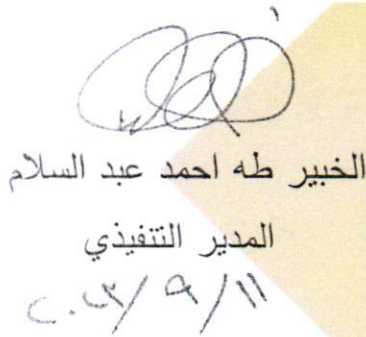 الخبير طه احمد عبد السلام
المدير التنفيذي
٢٠٢٣/٩/١١